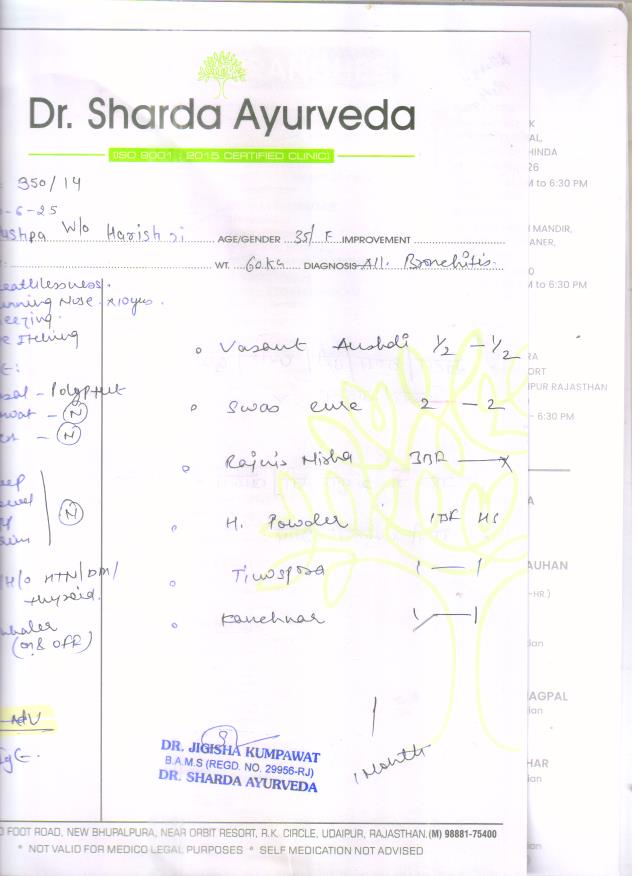 Dr. Sharda Ayurveda
(ISO 9001 : 2015 CERTIFIED CLINIC)
350/14
-6-25
ushpa W/o Harish ji AGE/GENDER 35/F IMPROVEMENT
WT. 60Kg DIAGNOSIS All. Bronchitis.
eathlessness.
unning Nose. x10yrs.
eezing.
e Itching
sal - Polyp
oat - N
N
N
H/o HTN/DM/
thyroid.
nhaler
(on & OFF)
Adv
IgE.
Vasant 1/2 - 1/2
Swas cure 2 - 2
Rajnis Misha 3BF - x
H. Powder 1BF HS
Tinospora 1 - 1
Kanchnar 1 - 1
1 Month
DR. JIGISHA KUMPAWAT
B.A.M.S (REGD. NO. 29956-RJ)
DR. SHARDA AYURVEDA
FOOT ROAD, NEW BHUPALPURA, NEAR ORBIT RESORT, R.K. CIRCLE, UDAIPUR, RAJASTHAN.(M) 98881-75400
* NOT VALID FOR MEDICO LEGAL PURPOSES * SELF MEDICATION NOT ADVISED
K
AL,
HINDA
26
M to 6:30 PM
MANDIR,
ANER,
0
M to 6:30 PM
RA
ORT
IPUR RAJASTHAN
- 6:30 PM
A
AUHAN
-HR.)
ian
AGPAL
ian
HAR
ian
ion